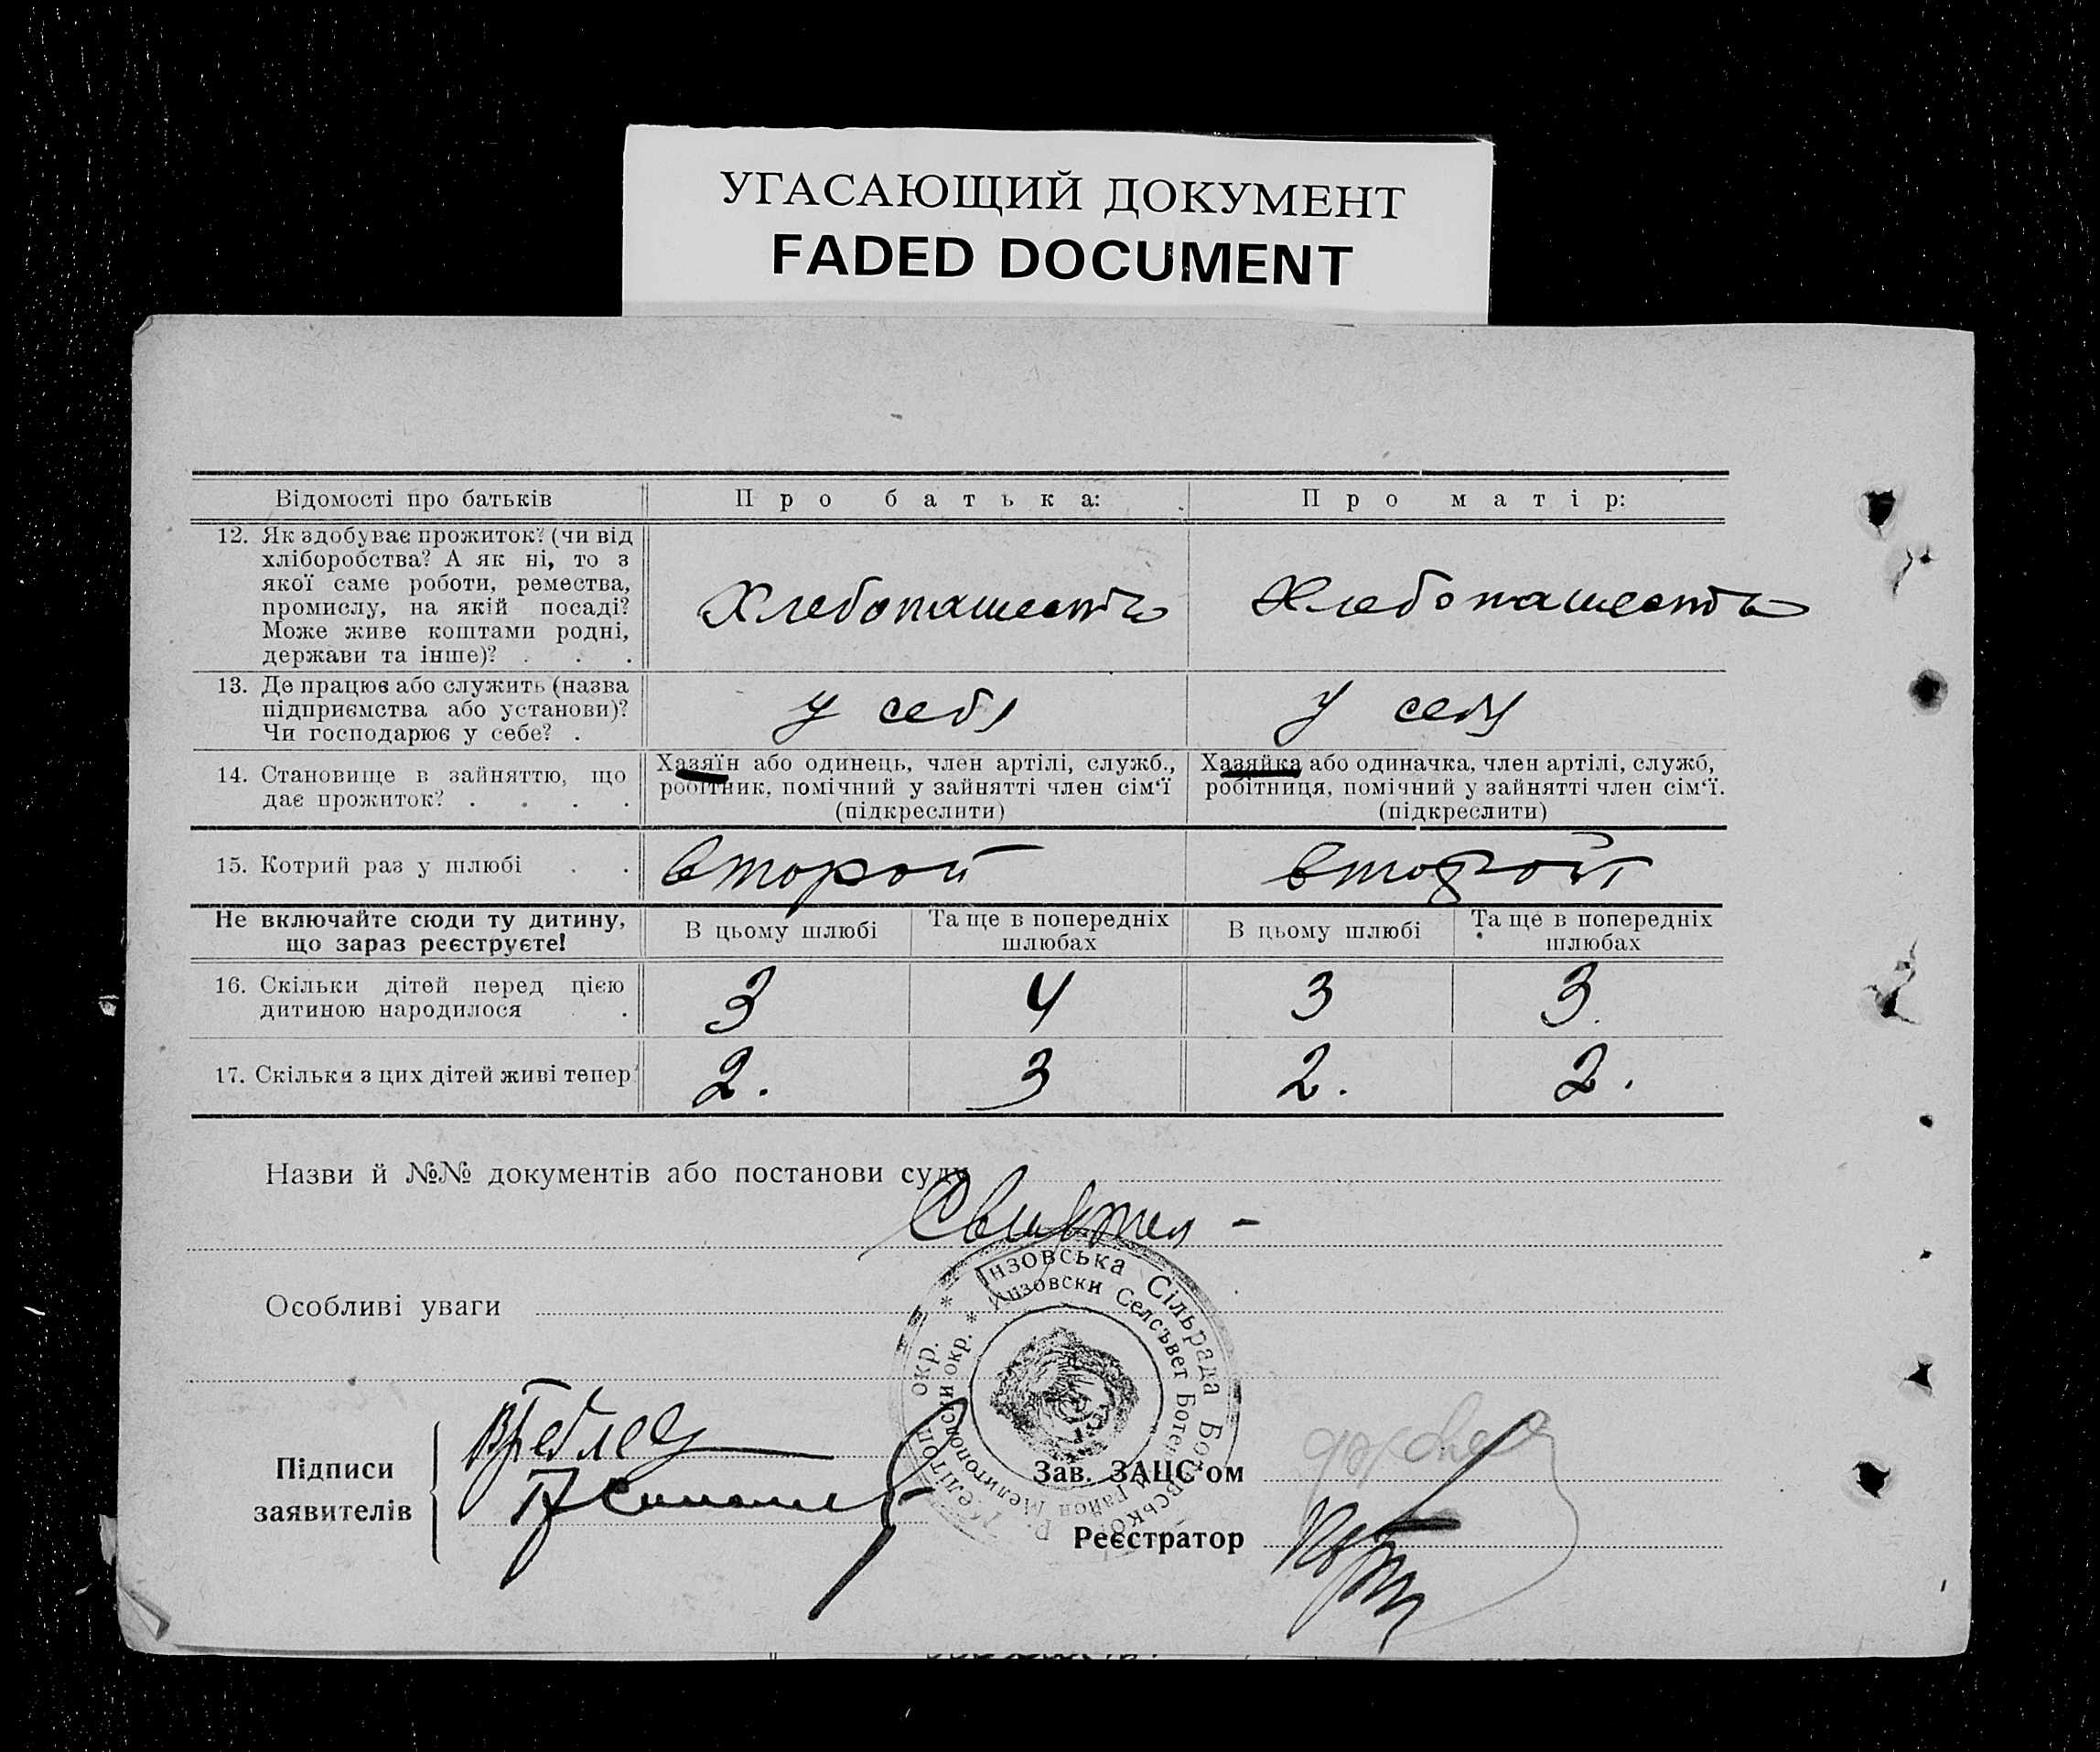 УГАСАЮЩИЙ ДОКУМЕНТ
FADED DOCUMENT
Відомості про батьків
Про батька:
Про матір:
12. Як здобуває прожиток? (чи від
хліборобства? А як ні, то з
якої саме роботи, ремества,
промислу, на якій посаді?
Може живе коштами родні,
держави та інше)? . . .
Хлебопашест
Хлебопашест
13. Де працює або служить (назва
підприємства або установи)?
Чи господарює у себе? .
у себя
у себя
14. Становище в зайняттю, що
дає прожиток? . . . .
Хазяїн або одинець, член артілі, служб.,
робітник, помічний у зайнятті член сім'ї
(підкреслити)
Хазяйка або одиначка, член артілі, служб,
робітниця, помічний у зайнятті член сім'ї.
(підкреслити)
15. Котрий раз у шлюбі . .
второй
второй
Не включайте сюди ту дитину,
що зараз реєструєте!
В цьому шлюбі
Та ще в попередніх
шлюбах
В цьому шлюбі
Та ще в попередніх
шлюбах
16. Скільки дітей перед цією
дитиною народилося .
3
4
3
3.
17. Скільки з цих дітей живі тепер
2.
3
2.
2.
Назви й №№ документів або постанови суду
Особливі уваги
Інзовська Сільрада
Инзовски Селсъвет
Мелитополски окр.
Підписи
заявителів
Зав. ЗАЦС'ом
Реєстратор